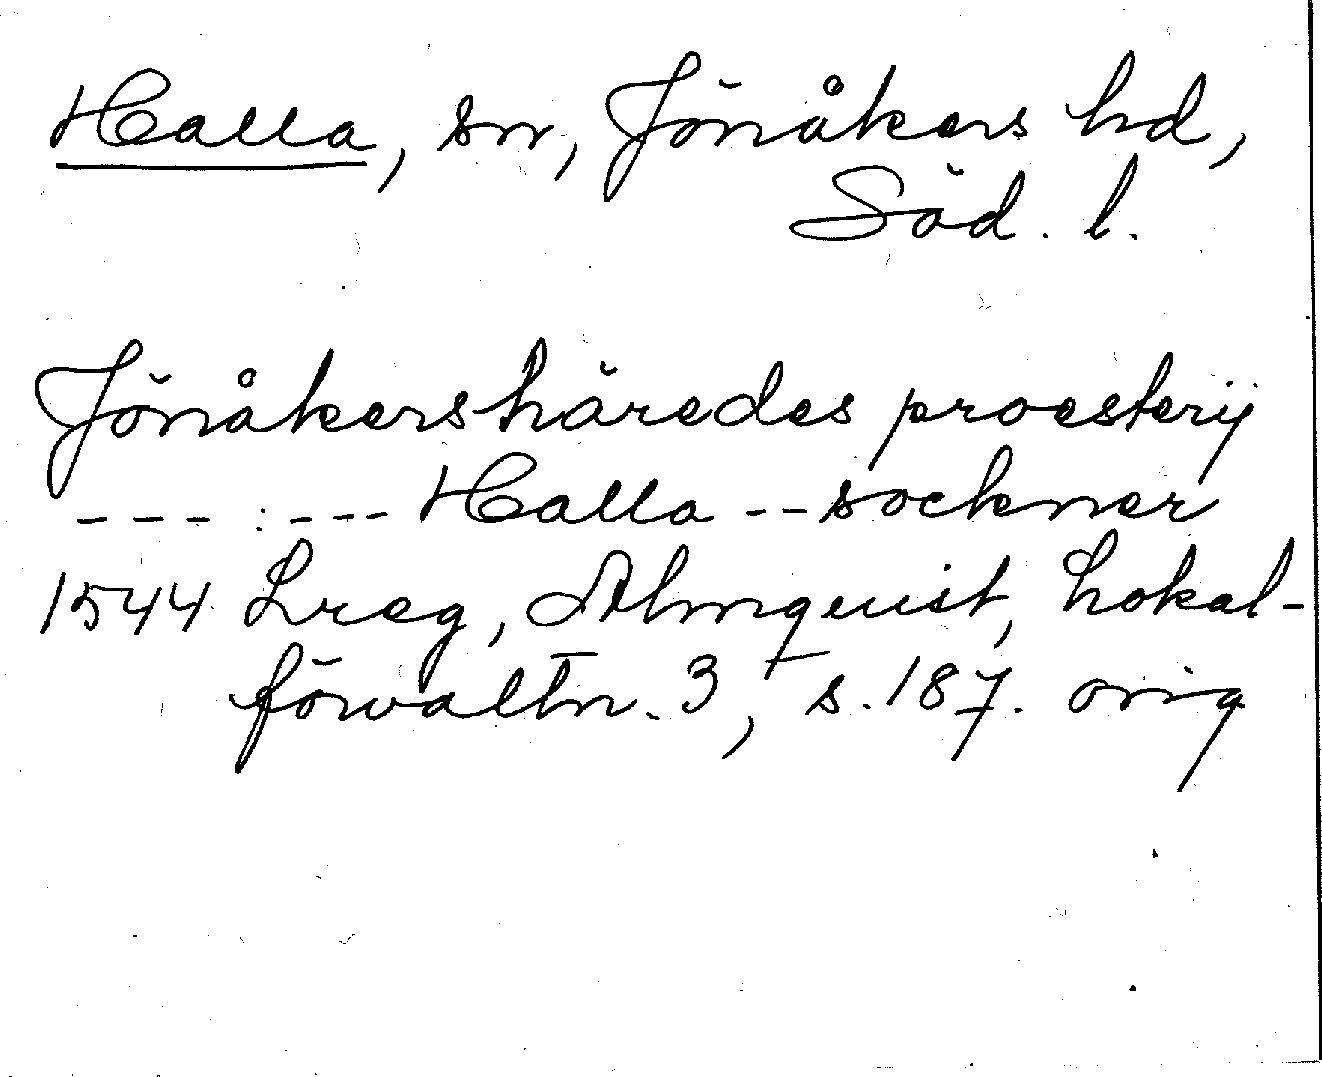 Halla, sn, Jönåkers hd,
Söd. l.
Jönåkershäredes proesterij
--- : --- Halla -- socknar
1544 Lreg, Almquist, Lokal-
förvaltn. 3, s. 187. orig